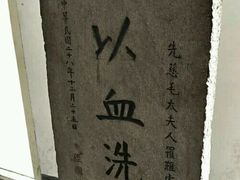 先慈毛太夫人罹難
以血洗
中華民國二十八年十二月二十五日